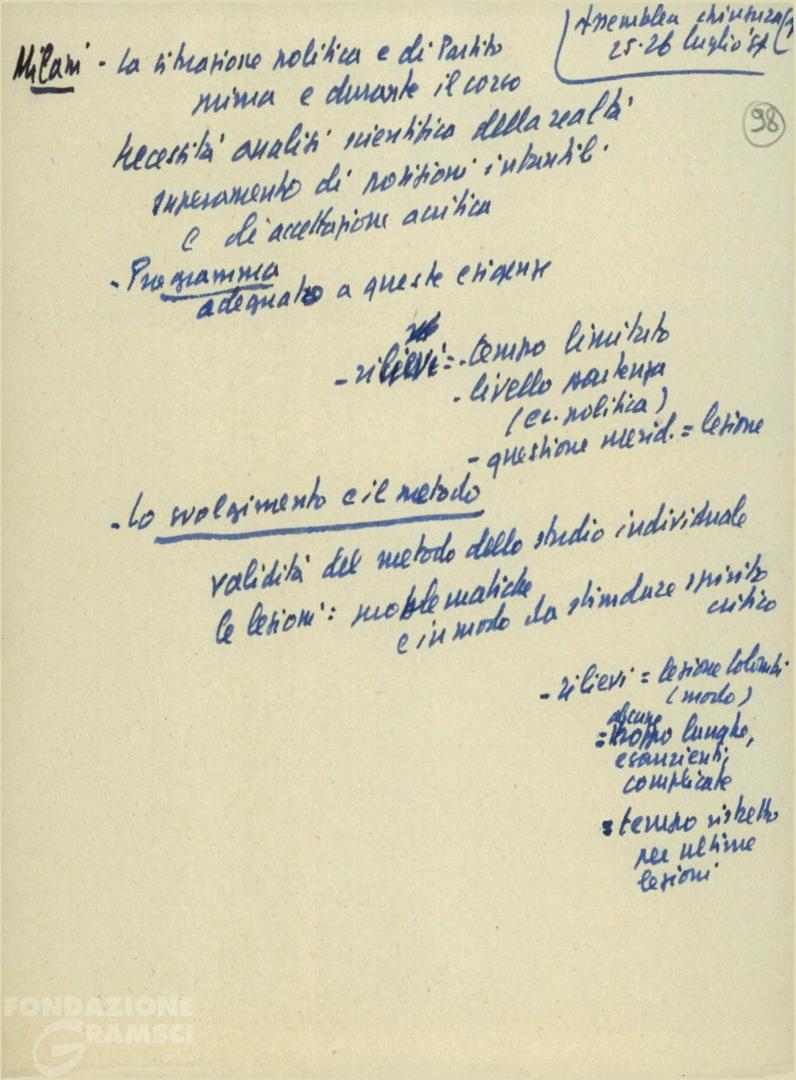 Assemblea chiusura
25-26 luglio '57
98
Milani - La situazione politica e di Partito
prima e durante il corso
Necessità analisi scientifica della realtà
superamento di posizioni infantili
e di accettazione acritica
- Programma
adeguato a queste esigenze
- rilievi = - tempo limitato
- livello partenza
(es. politica)
- questione merid. = lezione
- Lo svolgimento e il metodo
validità del metodo dello studio individuale
le lezioni: problematiche
e in modo da stimolare spirito
critico
- rilievi = lezione Colombi
(modo)
alcune
= troppo lunghe,
esaurienti,
complicate
= tempo ristretto
per ultime
lezioni
FONDAZIONE
GRAMSCI
onlus